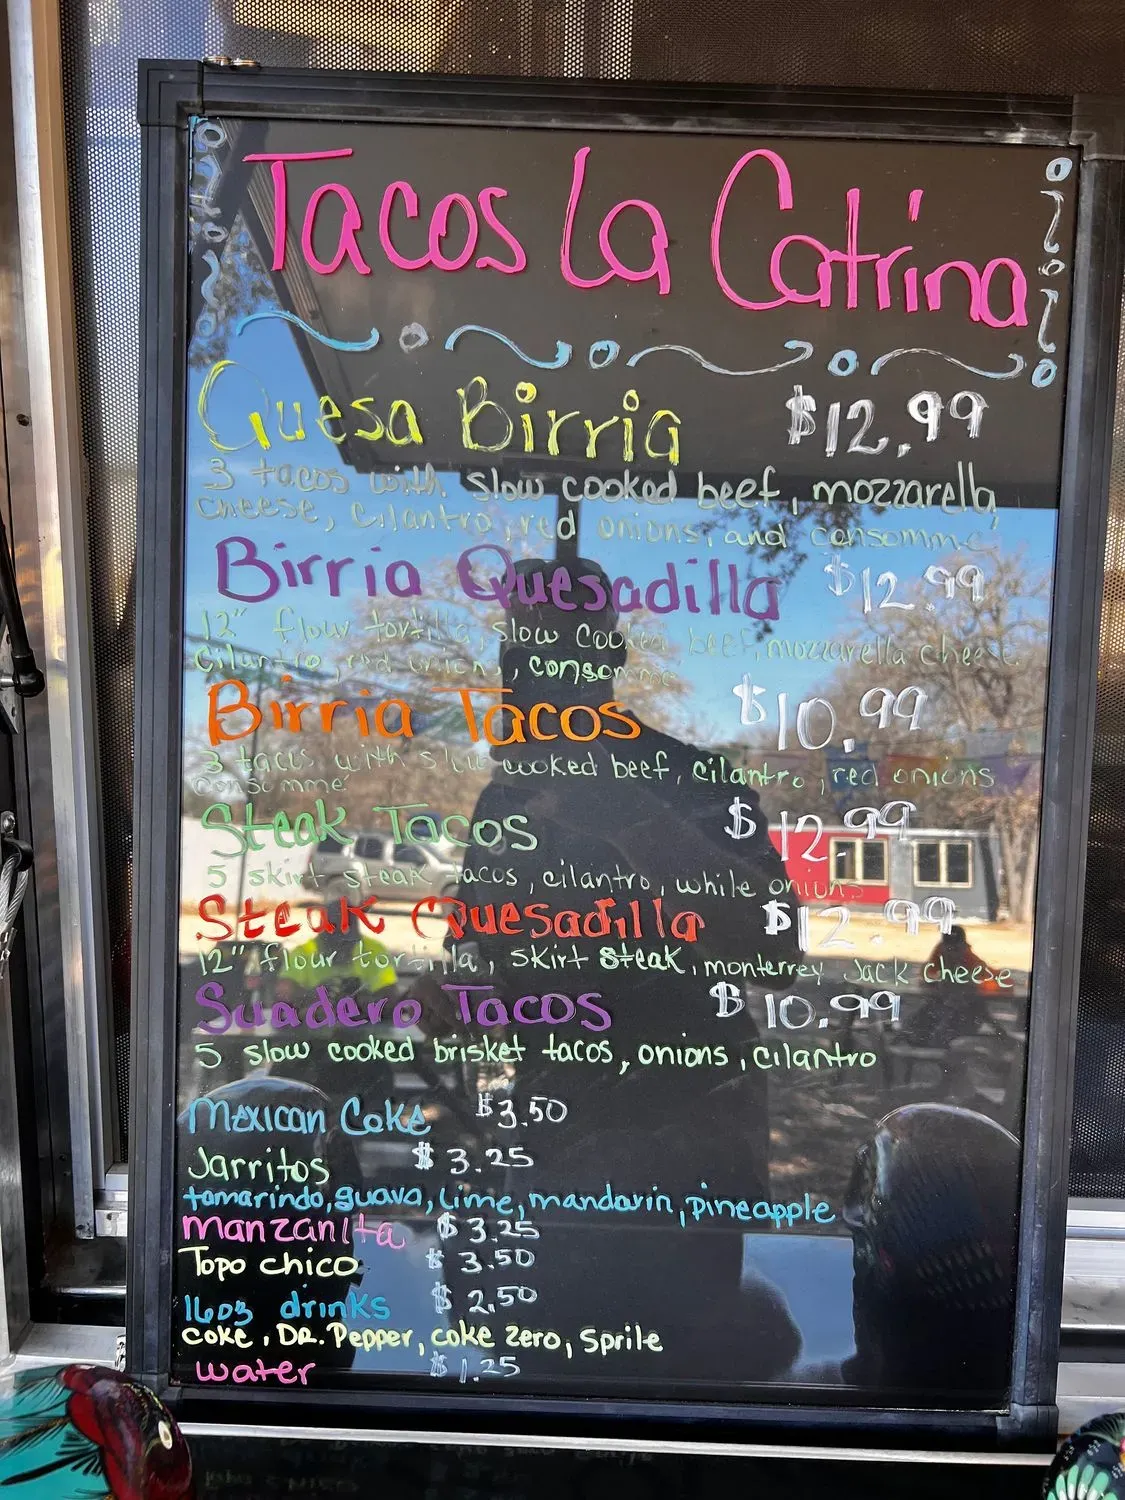 Tacos La Catrina
Quesa Birria $12.99
3 tacos with slow cooked beef, mozzarella
cheese, cilantro, red onions, and consomme
Birria Quesadilla $12.99
12" flour tortilla, slow cooked beef, mozzarella cheese
cilantro, red onions, consomme
Birria Tacos $10.99
3 tacos with slow cooked beef, cilantro, red onions
consomme
Steak Tacos $12.99
5 skirt steak tacos, cilantro, while onions
Steak Quesadilla $12.99
12" flour tortilla, skirt steak, monterrey Jack cheese
Suadero Tacos $10.99
5 slow cooked brisket tacos, onions, cilantro
Mexican Coke $3.50
Jarritos $3.25
tamarindo, guava, Lime, mandarin, pineapple
manzanita $3.25
Topo chico $3.50
16oz drinks $2.50
coke, DR. Pepper, coke zero, Sprile
water $1.25